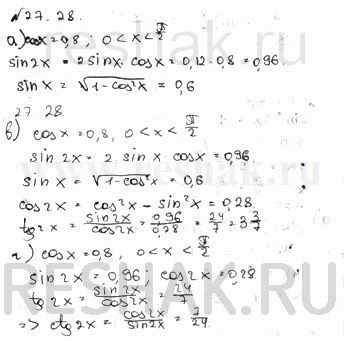 №27.28.
а) cosx=0,8, 0<x<π/2
sin2x = 2sinx·cosx = 0,12·0,8=0,96.
sinx = √(1-cos²x) = 0,6
27 28.
в) cosx=0,8, 0<x<π/2
sin2x = 2 sinx cosx=0,96
sinx = √(1-cos²x) = 0,6
cos2x = cos²x - sin²x = 0,28.
tg2x = sin2x/cos2x = 0,96/0,28 = 24/7 = 3 3/7
г) cosx=0,8, 0<x<π/2
sin2x=0,96, cos2x=0,28
tg2x = sin2x/cos2x = 24/7
=> ctg2x = cos2x/sin2x = 7/24.
reshak.ru
RESHAK.RU